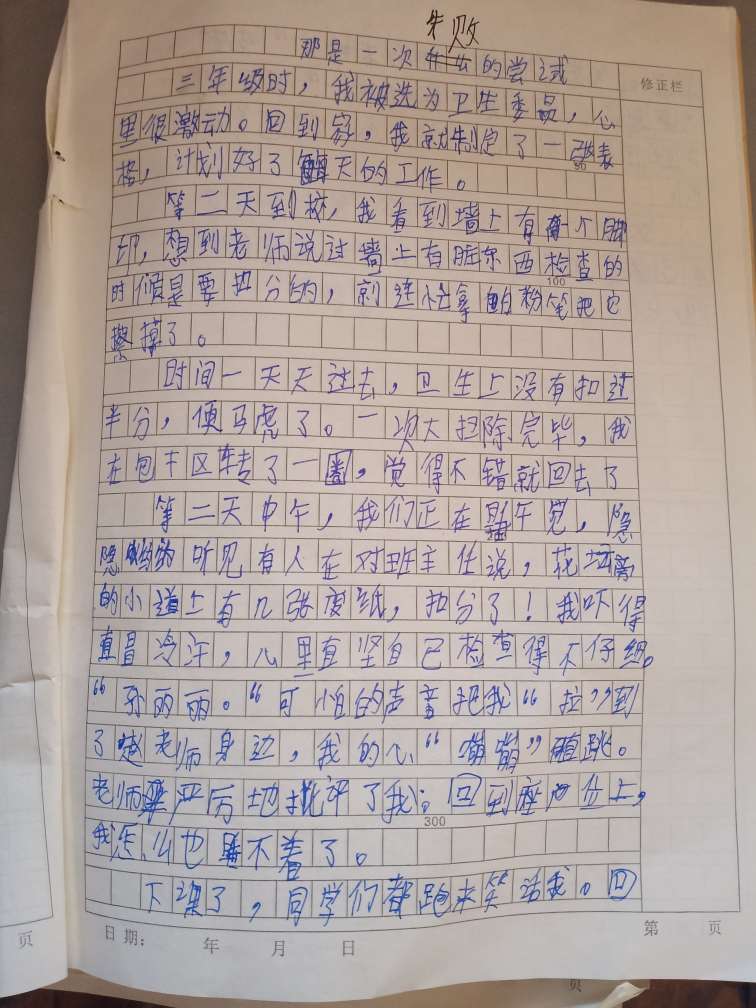 失败
那是一次的尝试
修正栏
三年级时，我被选为卫生委员，心
里很激动。回到家，我就制定了一张表
格，计划好了每天的工作。
50
等二天到校，我看到墙上有一个脚
印，想到老师说过墙上有脏东西检查的
100
时候是要扣分的，就连忙拿白粉笔把它
擦掉了。
时间一天天过去，卫生上没有扣过
半分，便马虎了。一次大扫除完毕，我
在包干区转了一圈，觉得不错就回去了
等二天中午，我们正在睡午觉，隐
隐约约听见有人在对班主任说，花坛旁
的小道上有几张废纸，扣分了！我吓得
直冒冷汗，心里直坚自己检查得不仔细。
“孙丽丽。“可怕的声音把我“拉”到
了赵老师身边，我的心“嘣嘣”直跳。
老师严厉地批评了我。回到座位上，
300
我怎么也睡不着了。
下课了，同学们都跑来笑话我。回
日期： 年 月 日
第 页
页
页